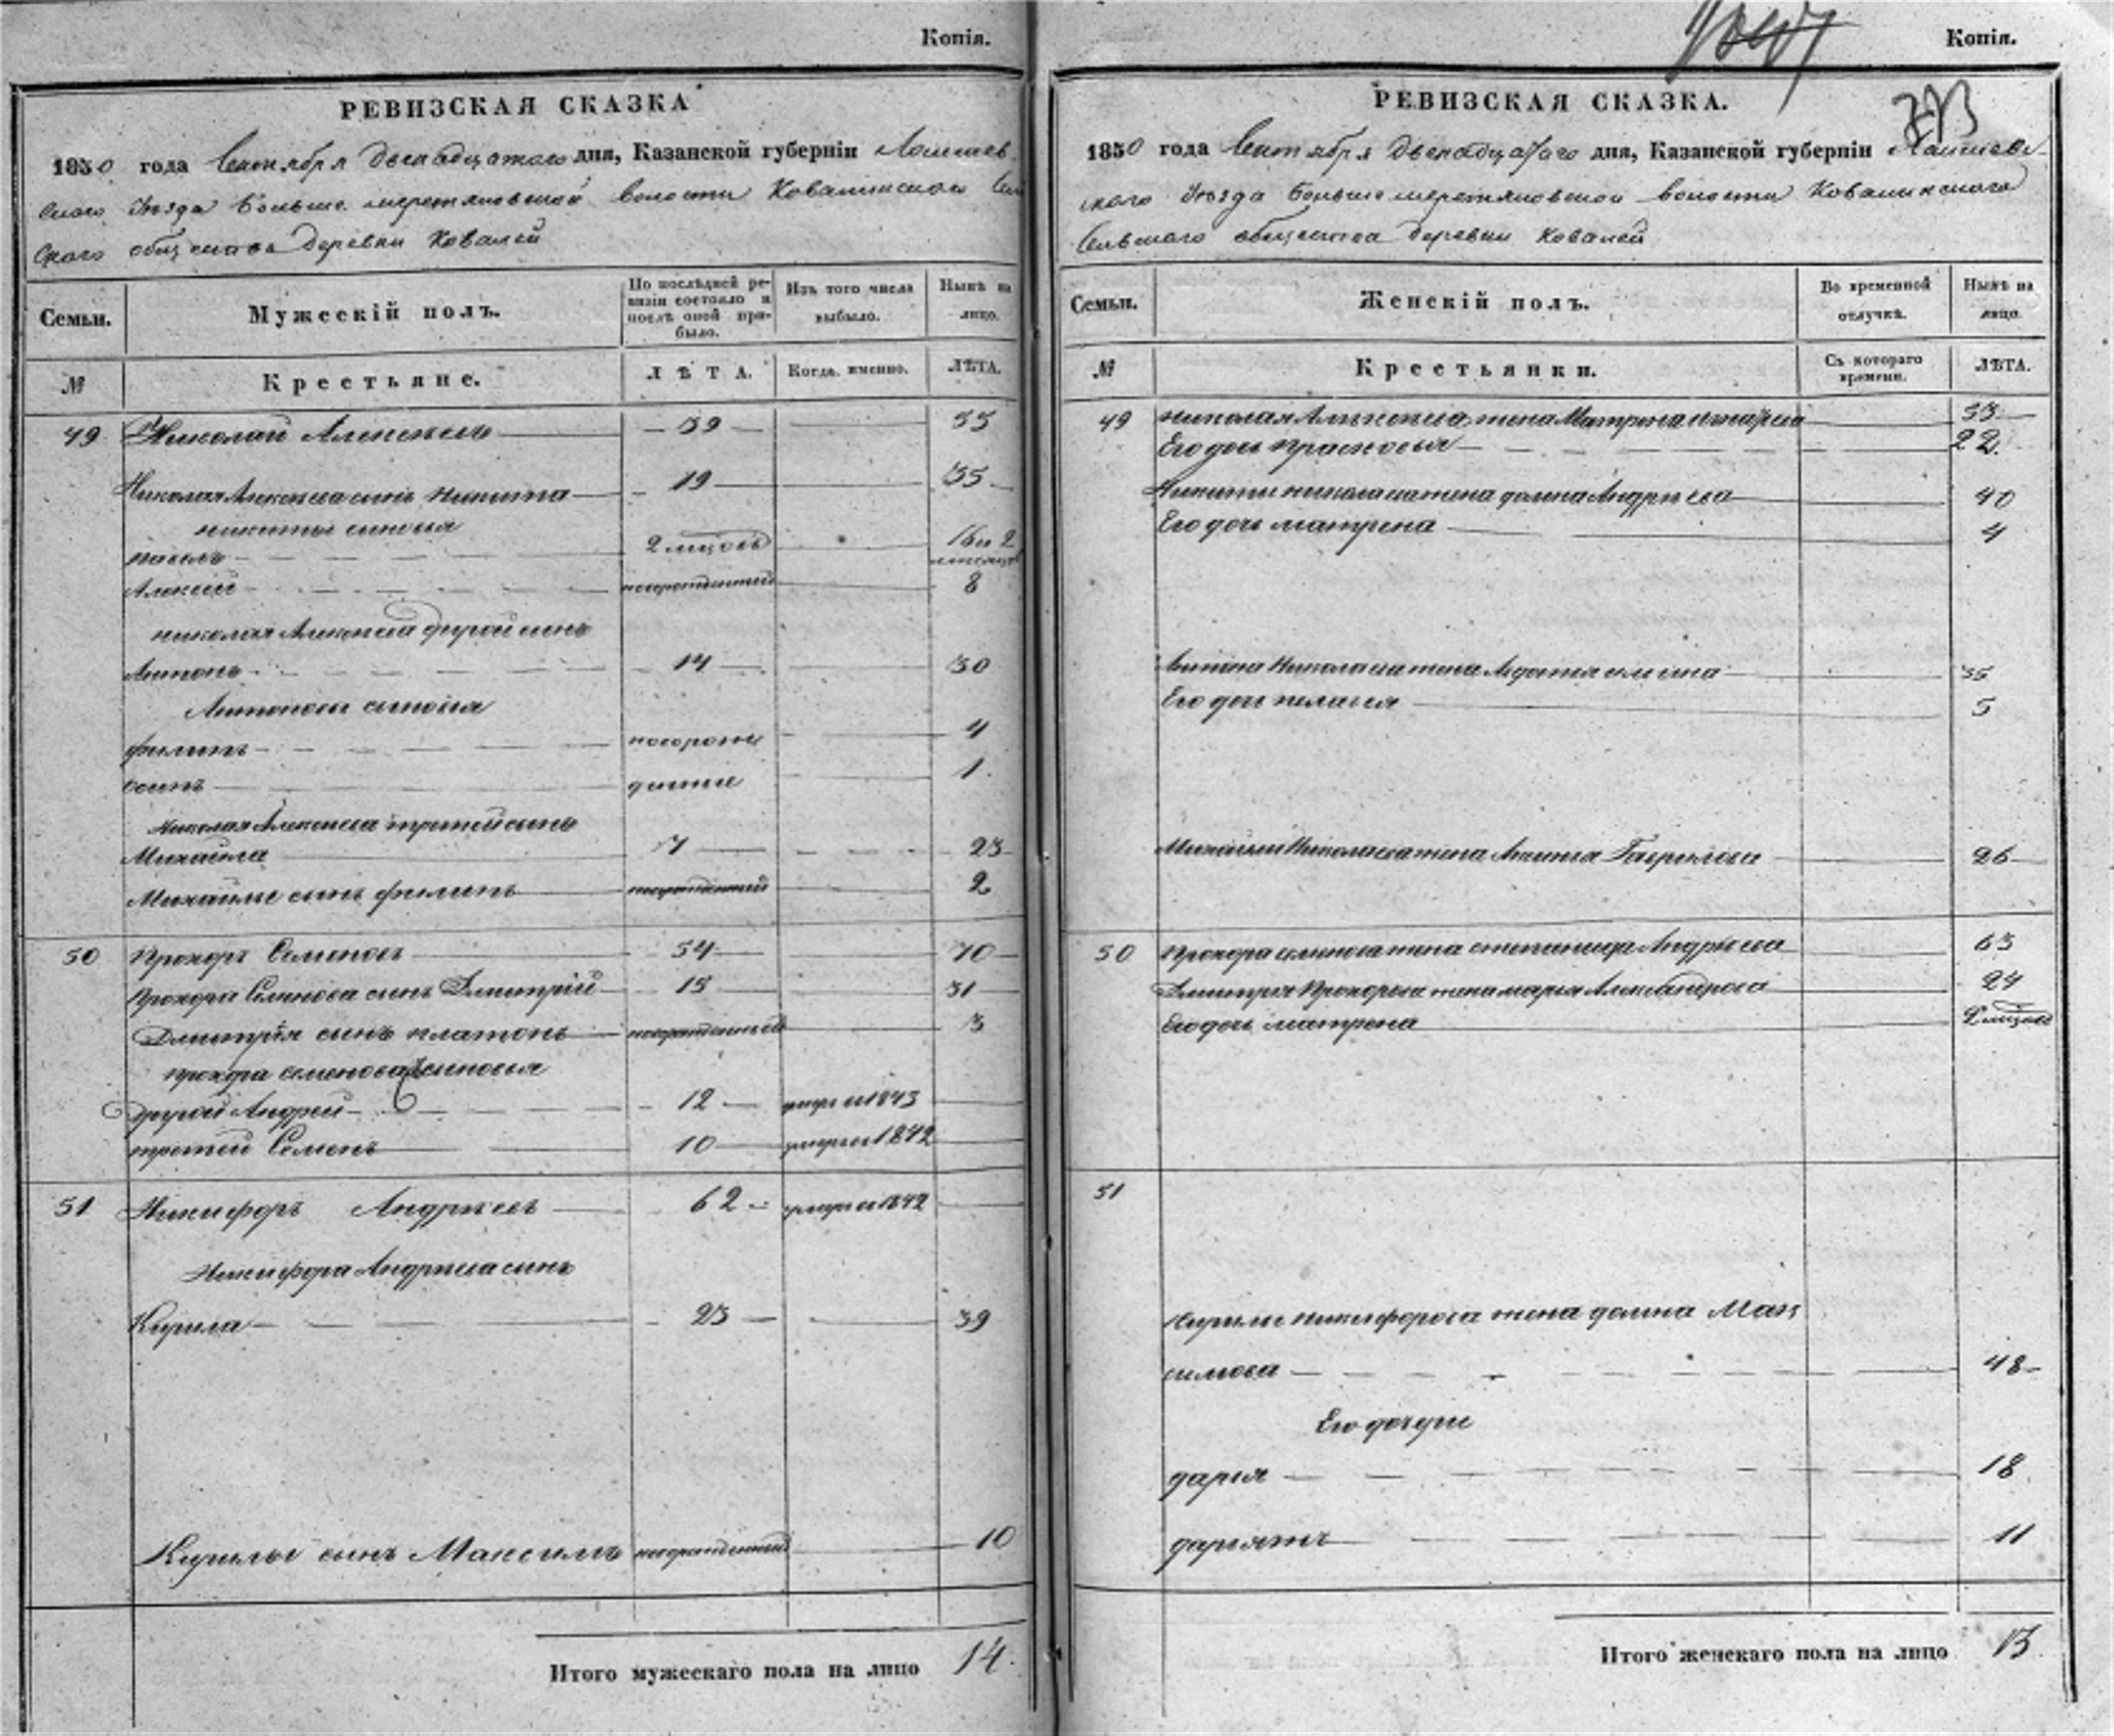 Копія.
РЕВИЗСКАЯ СКАЗКА
1850 года Сентября двенадцатого дня, Казанской губерніи Лаишев
ского Уезда Больше волости Ковалинского Сель
ского общества деревни Ковалей
Семьи. Мужескій полъ. По послѣдней ре-визіи состояло и послѣ оной при-было. Изъ того числа выбыло. Нынѣ на лицо.
№ Крестьяне. ЛѢТА. Когда именно. ЛѢТА.
49 Николай Алексеевъ 39 55
Николая Алексеева сынъ Никита 19 35
Никиты сыновья
Павелъ 2 16 и 2
Алексей новорожденный 8
Николая Алексеева другой сынъ
Антонъ 14 30
Антоновы сыновья
Филипъ новорож 4
Осипъ денные 1
Николая Алексеева третей сынъ
Михайла 7 23
Михайлы сынъ Филипъ новорожденный 2
50 Прохоръ Семеновъ 54 70
Прохора Семенова сынъ Дмитрій 15 31
Дмитрія сынъ Платонъ новорожденный 3
Прохора Семенова сыновья
другой Андрей 12 умре в 1843
третей Семенъ 10 умре в 1842
51 Никифоръ Андреевъ 62 умре в 1842
Никифора Андреева сынъ
Кирила 23 39
Кирилы сынъ Максимъ новорожденный 10
Итого мужескаго пола на лицо 14
Копія.
РЕВИЗСКАЯ СКАЗКА.
1850 года Сентября двенадцатаго дня, Казанской губерніи Лаишев
ского Уезда Больше волости Ковалинского
Сельского общества деревни Ковалей
Семьи. Женскій полъ. Во временной отлучкѣ. Нынѣ на лицо.
№ Крестьянки. Съ котораго времени. ЛѢТА.
49 Николая Алексеева жена Матрена 53
Его дочь Прасковья 22
Никиты Николаева жена Домна Андреева 40
Его дочь Матрена 4
Антона Николаева жена Авдотья 35
Его дочь Пелагея 5
Михайлы Николаева жена Гаврилова 26
50 Прохора Семенова жена Степанида Андреева 63
Дмитрия Прохорова жена Марья Александрова 24
Его дочь Матрена 2
51
Кирилы Никифорова жена Домна Мак
симова 48
Его дочери
Дарья 18
11
Итого женскаго пола на лицо 13